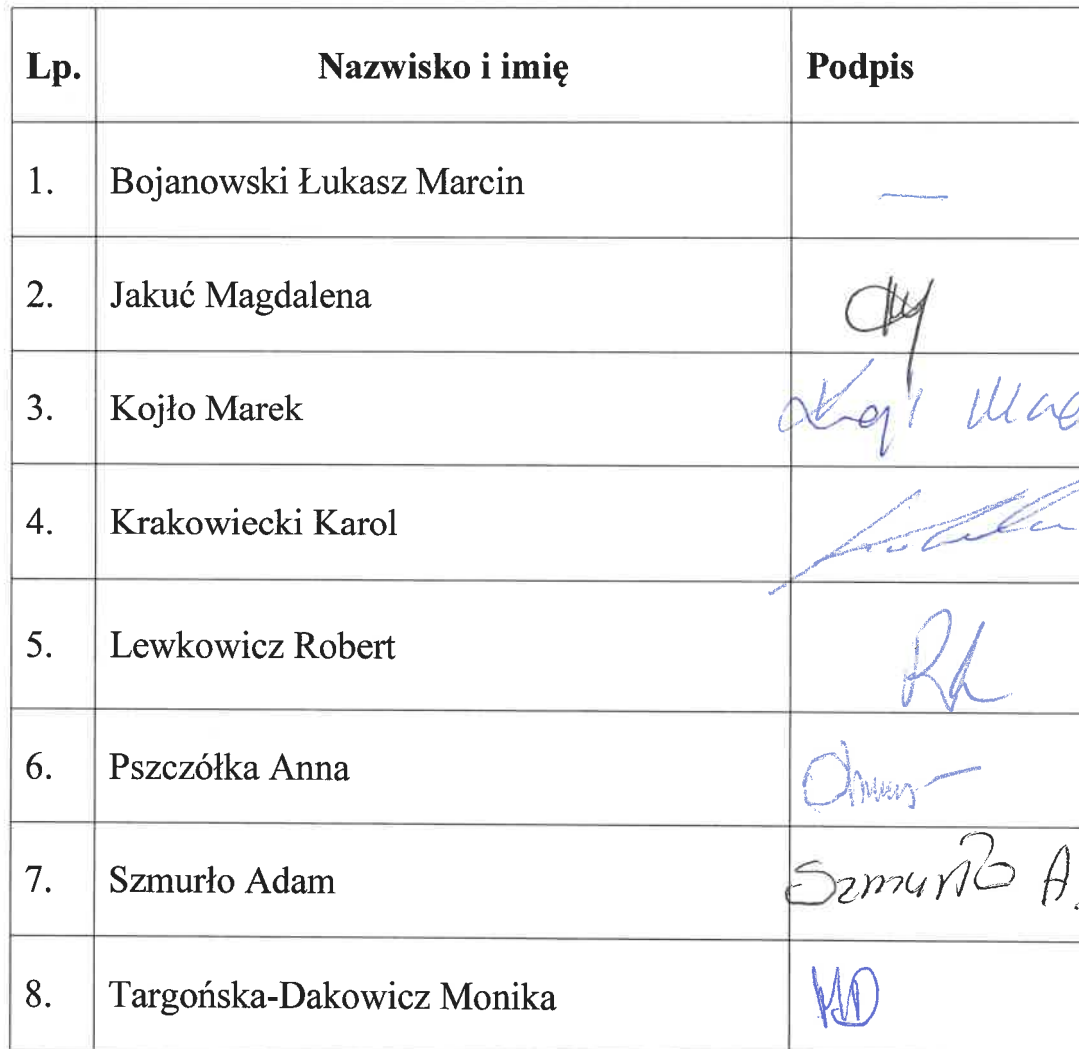 Lp. Nazwisko i imię Podpis
1. Bojanowski Łukasz Marcin —
2. Jakuć Magdalena
3. Kojło Marek
4. Krakowiecki Karol
5. Lewkowicz Robert
6. Pszczółka Anna
7. Szmurło Adam Szmurło A.
8. Targońska-Dakowicz Monika